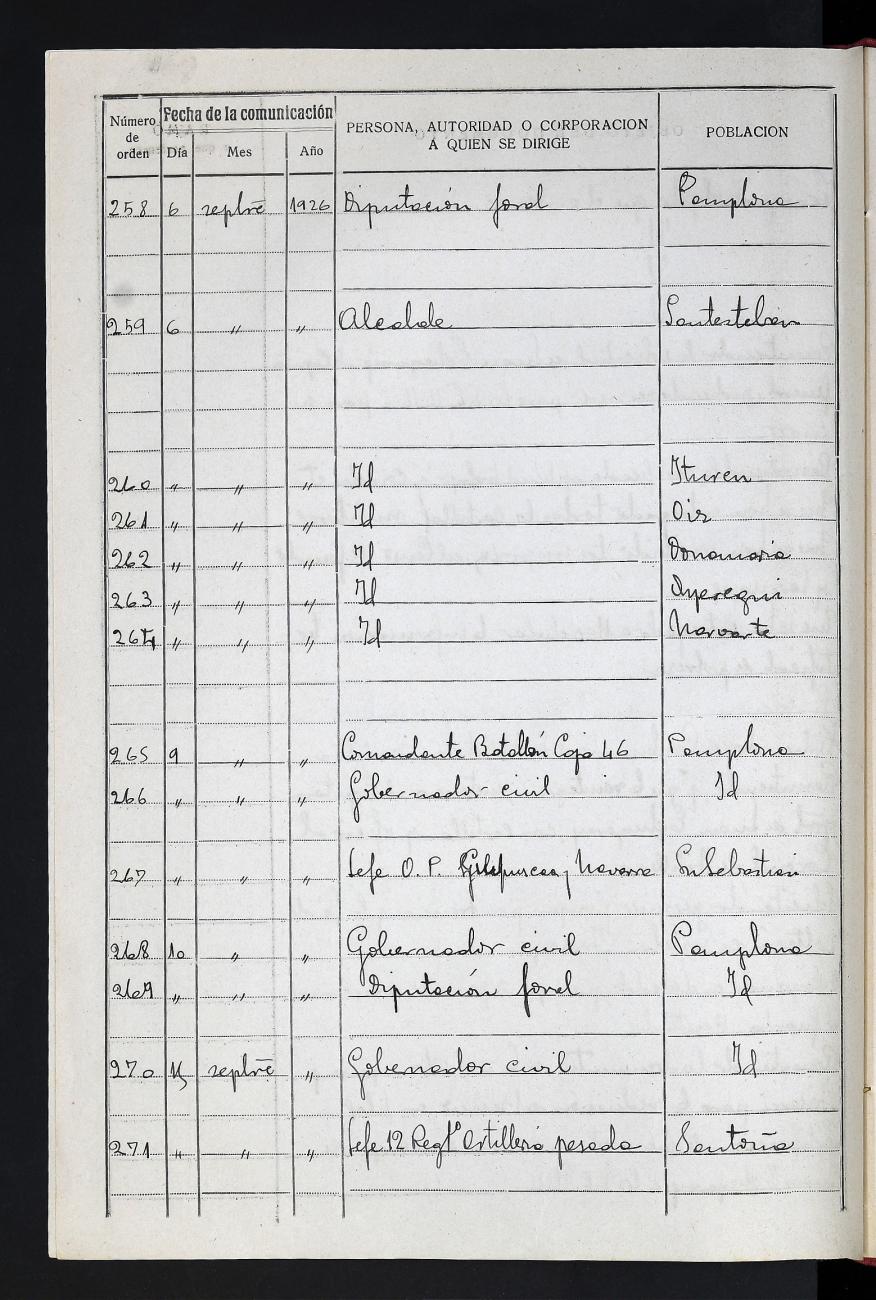 Número de orden | Fecha de la comunicación | PERSONA, AUTORIDAD O CORPORACION Á QUIEN SE DIRIGE | POBLACION
Día | Mes | Año
258 6 sepbre 1926 Diputación foral Pamplona
259 6 " " Alcalde Santesteban
260 " " " Id Ituren
261 " " " Id Oiz
262 " " " Id Donamaria
263 " " " Id Oyeregui
264 " " " Id Narvarte
265 9 " " Comandante Batallón Caja 46 Pamplona
266 " " " Gobernador civil Id
267 " " " Jefe O. P. Guipuscoa y Navarra Sn Sebastian
268 10 " " Gobernador civil Pamplona
269 " " " Diputación foral Id
270 15 sepbre " Gobernador civil Id
271 " " " Jefe 12 Regtº Artilleria pesada Santoña